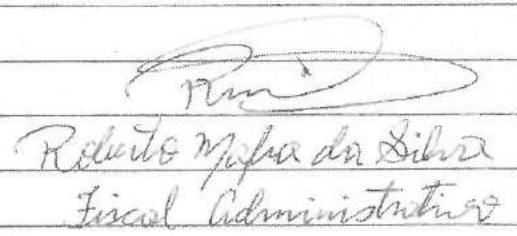 Roberto Mafra da Silva
Fiscal Administrativo